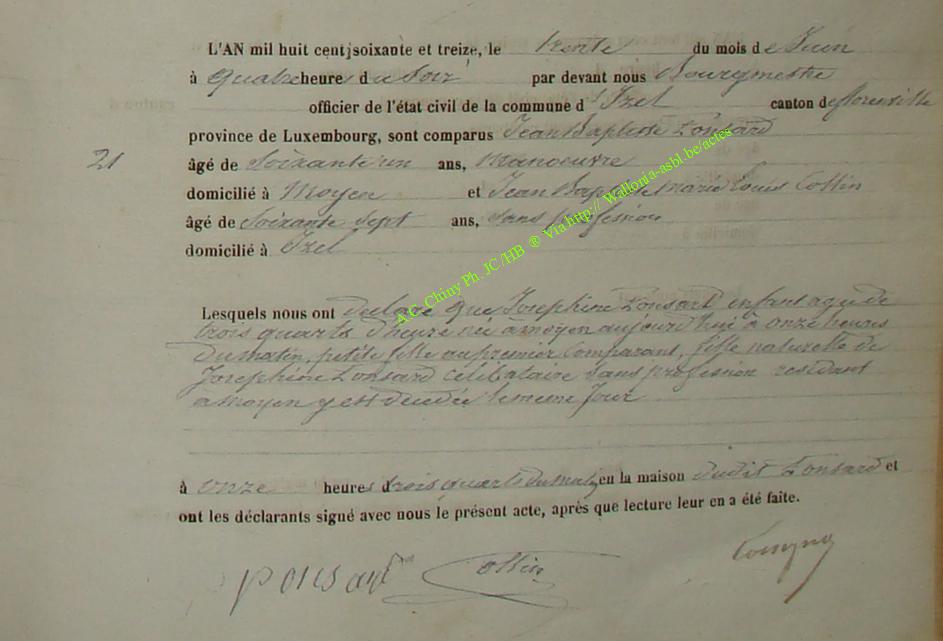 L'AN mil huit cent soixante et treize, le trente du mois de Juin
à quatre heure du Soir par devant nous Bourgmestre
officier de l'état civil de la commune d'Izel canton de florenville
province de Luxembourg, sont comparus Jean Baptiste Ponsard
21 âgé de Soixante un ans, Manoeuvre
domicilié à Moyen et Jean Baptiste Marie Louis Collin
âgé de Soixante Sept ans, Sans profession
domicilié à Izel
Lesquels nous ont declaré que Josephine Ponsart enfant agée de
trois quarts d'heure née à moyen aujourd'hui à onze heures
Dumatin, petite fille au premier Comparant, fille naturelle de
Josephine Ponsard Célibataire Sans profession residant
a moyen y est décédée le meme Jour
à onze heures trois quarts du matin en la maison dudit Ponsard et
ont les déclarants signé avec nous le présent acte, après que lecture leur en a été faite.
ponsart Collin
A.C. Chiny Ph. JC/HB ® Via http:// Wallonia-asbl.be/actes